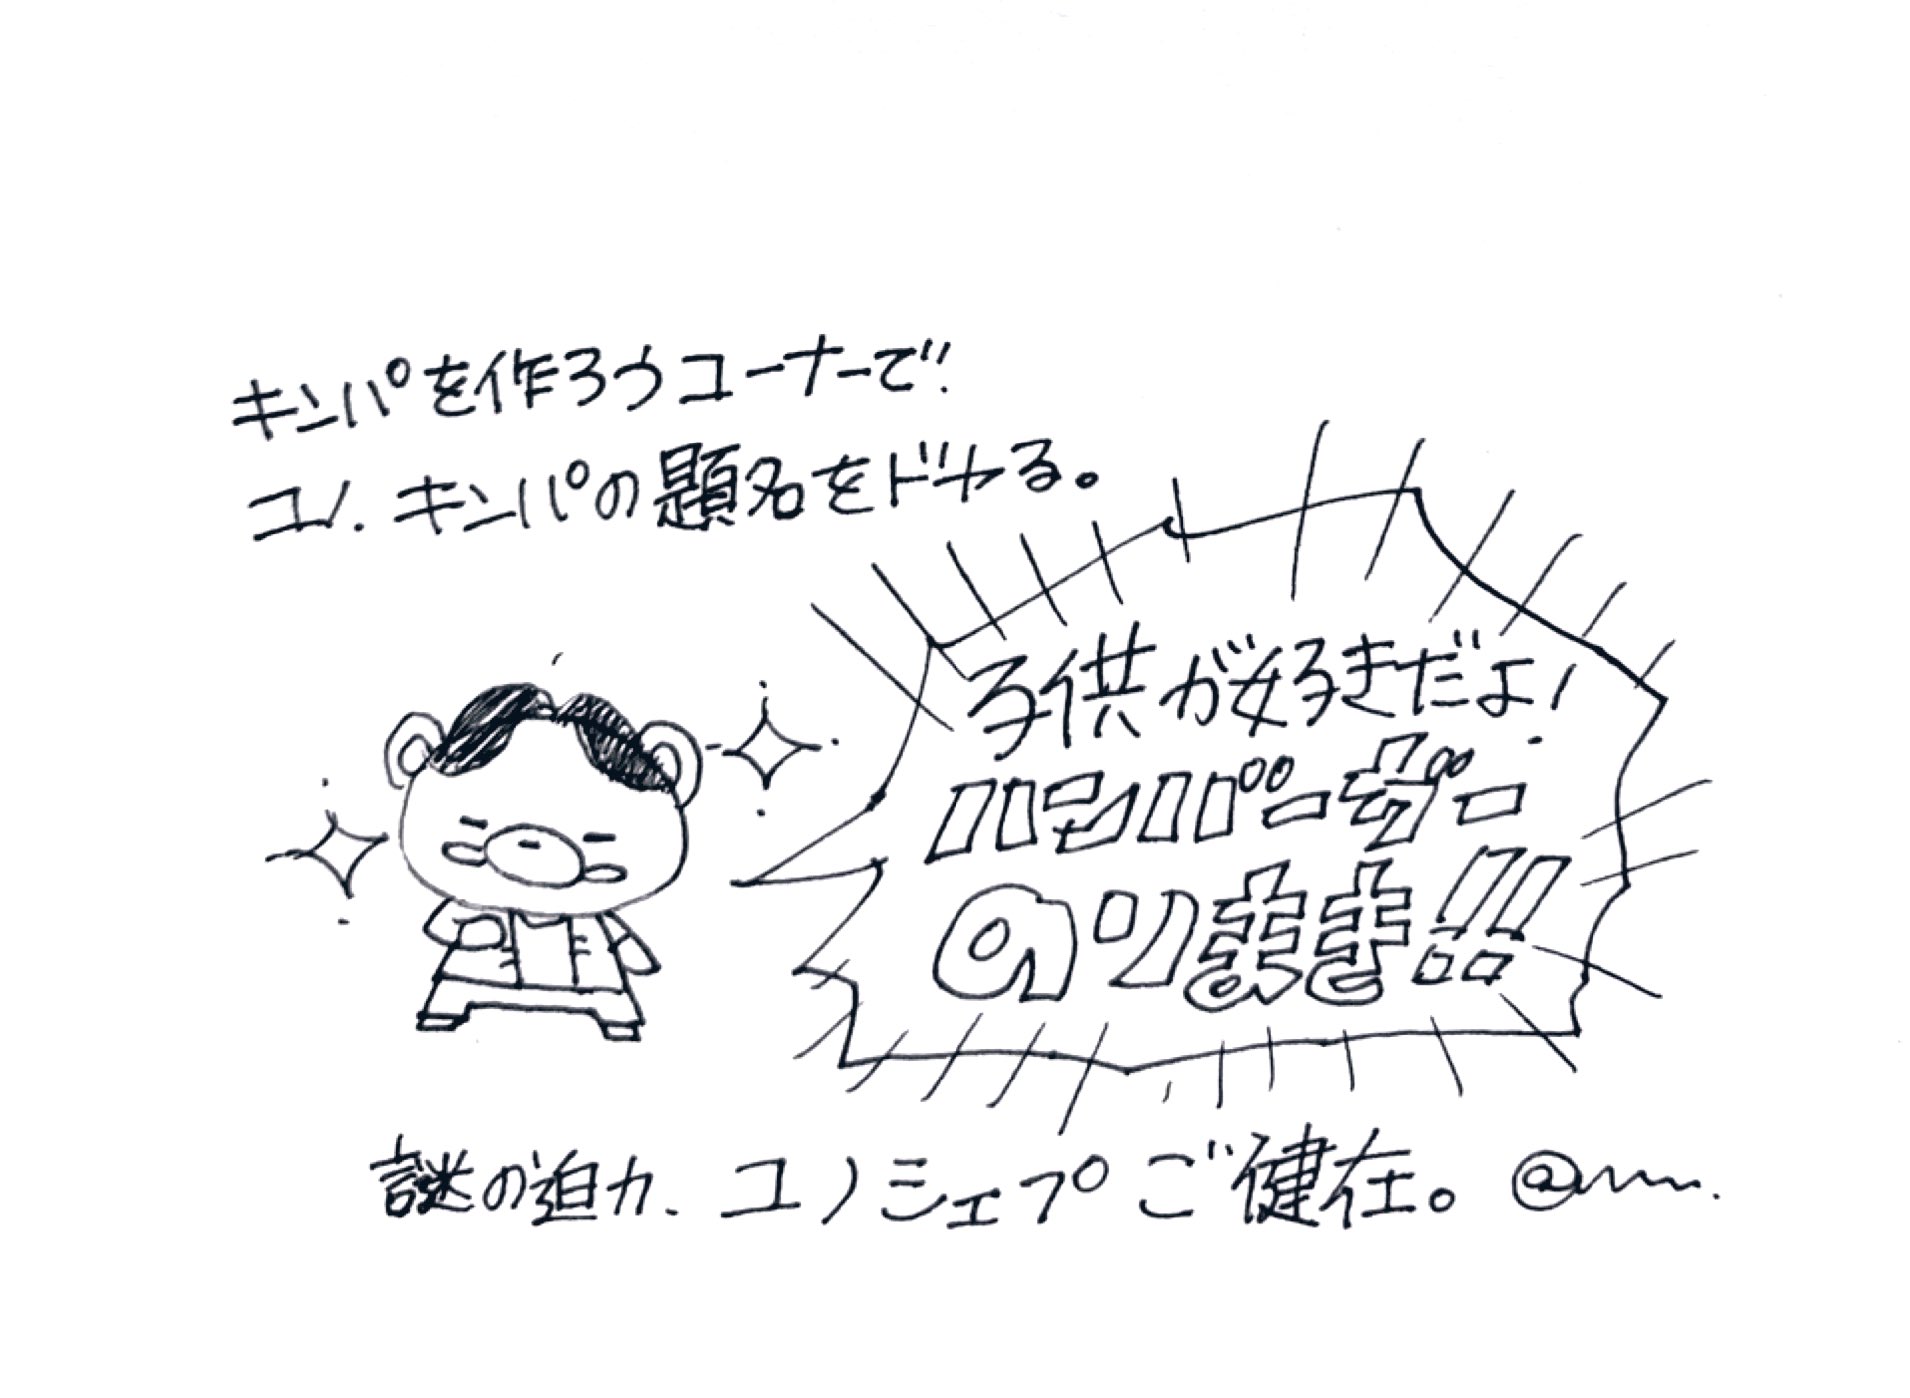 キンパを作ろうコーナーで!
ユノ. キンパの題名をドヤる。
子供が好きだよ!
ハンバーガー
のりまき!!
謎の迫力. ユノシェプご健在。